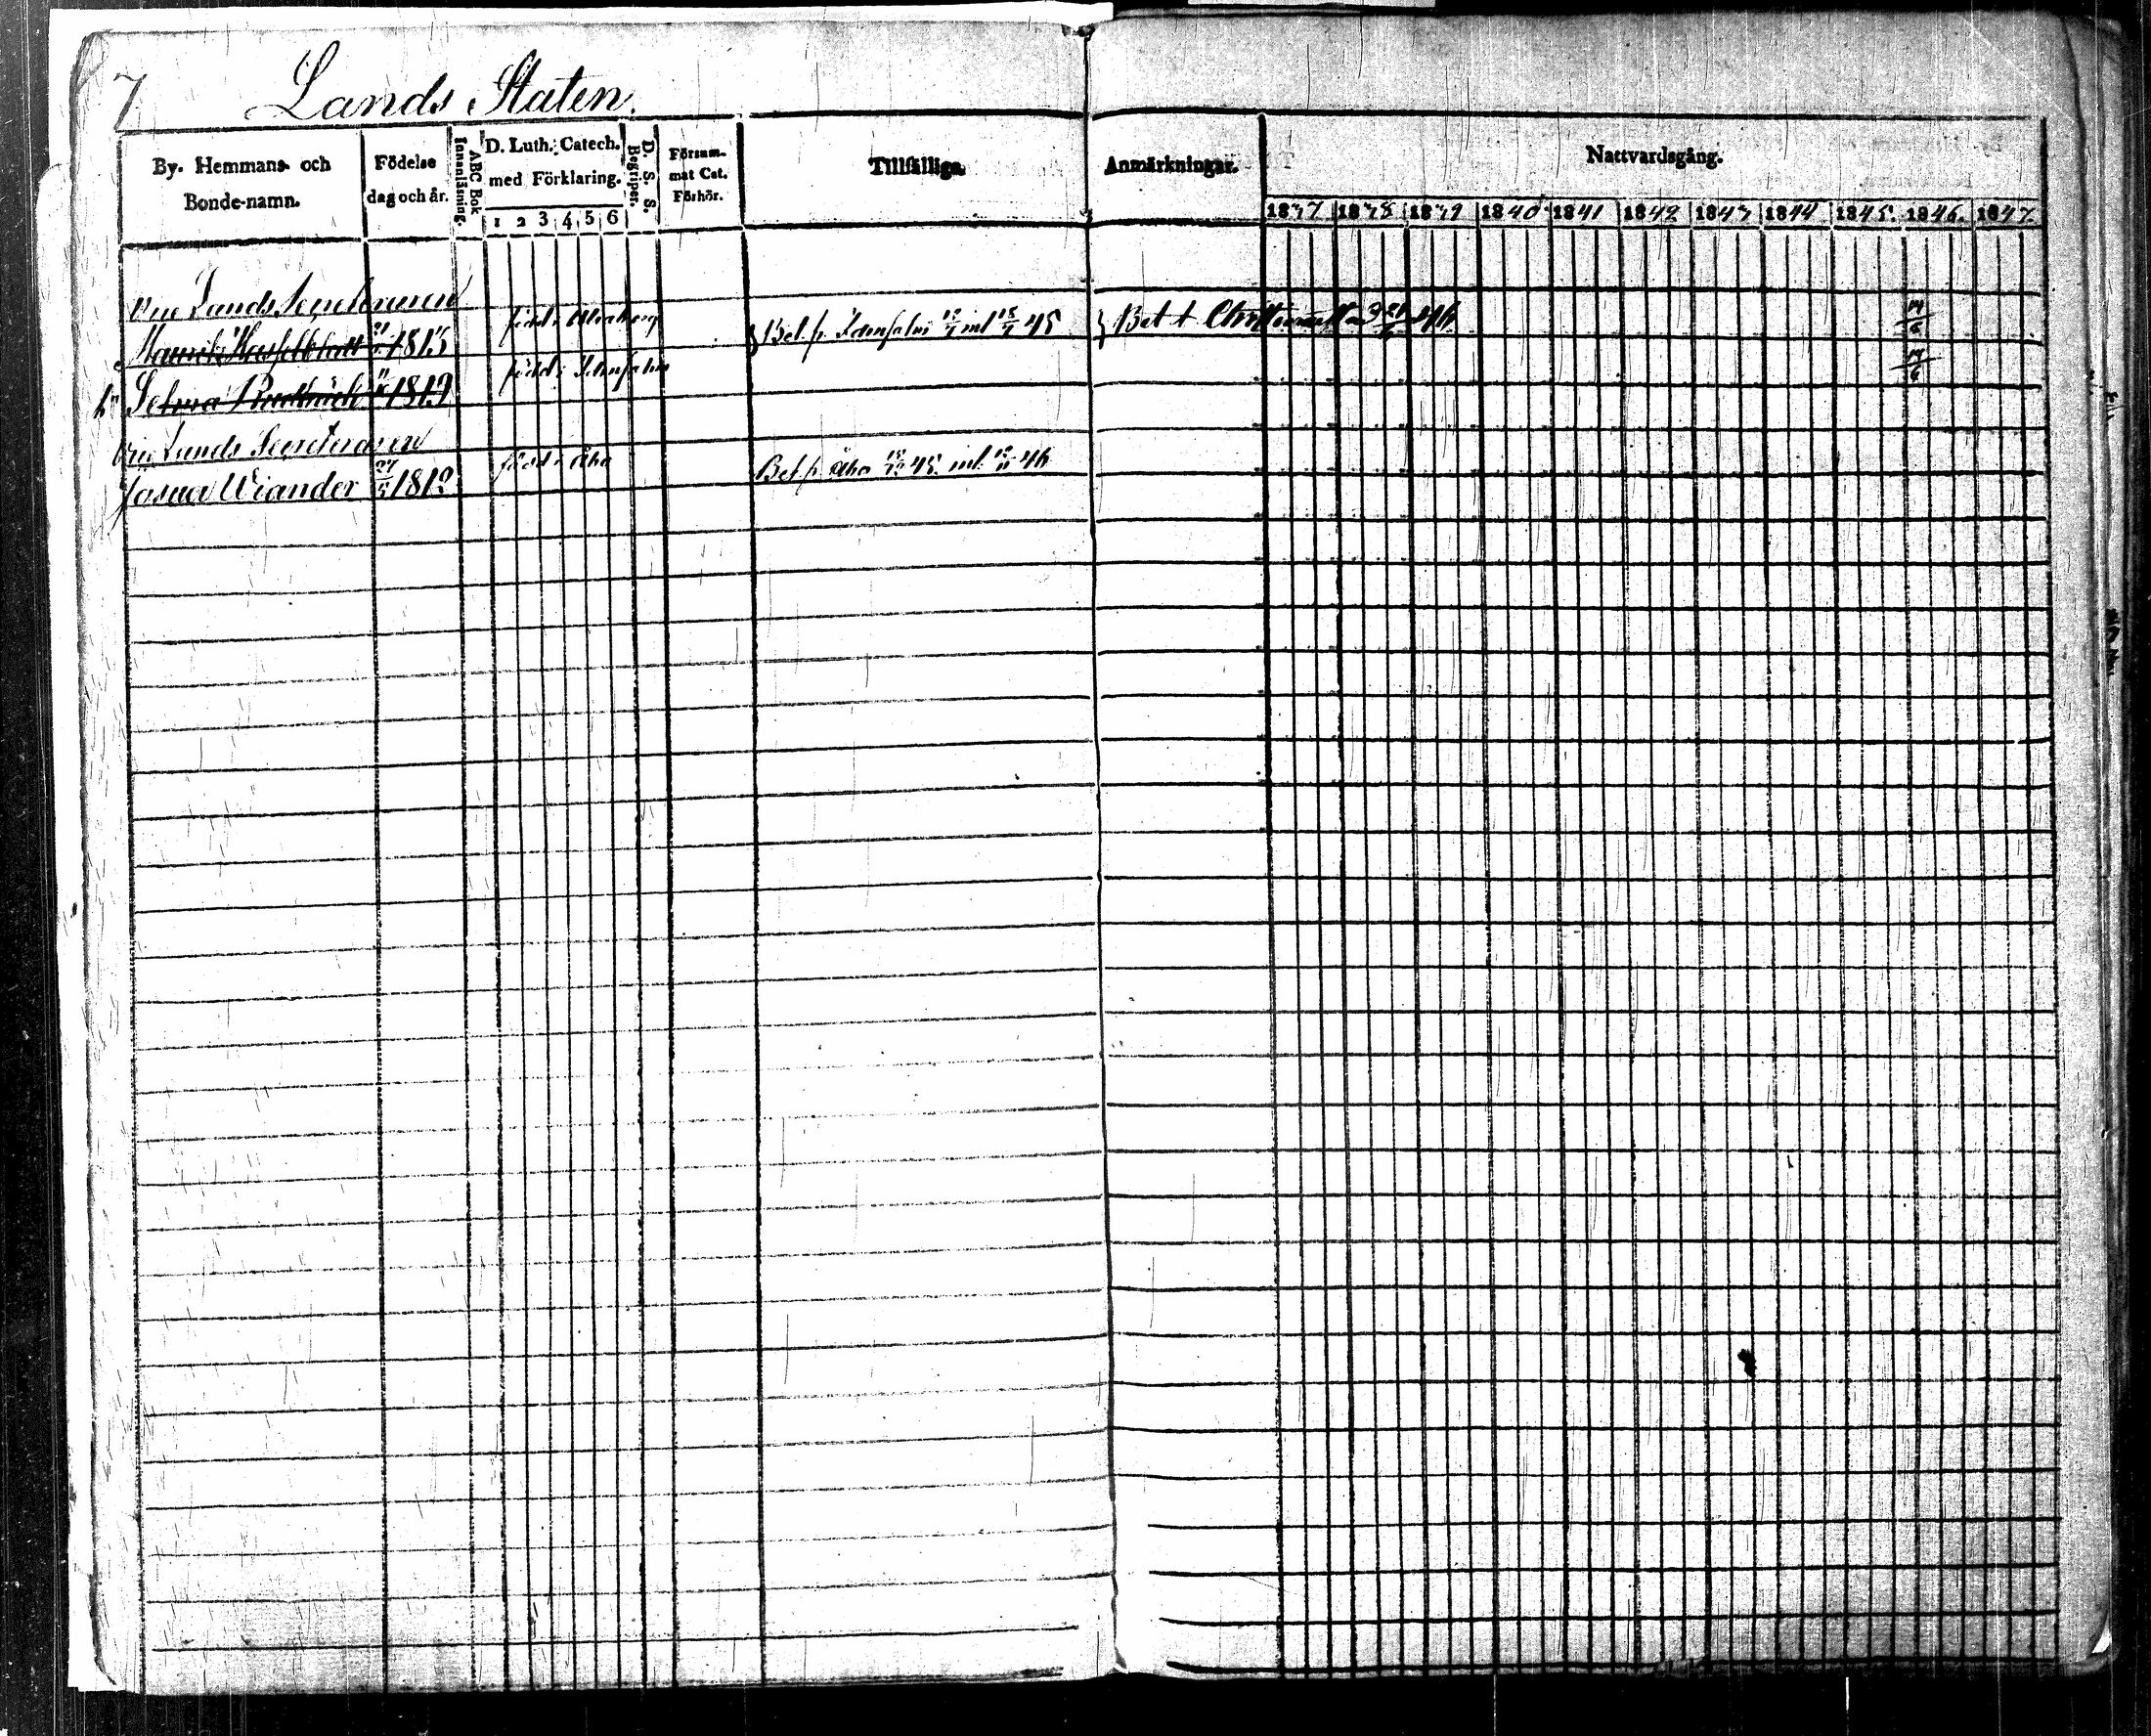 7 Lands Staten.
By. Hemmans- och Bonde-namn.
Födelse dag och år.
ABC Bok
Innanläsning.
D. Luth. Catech. med Förklaring.
1 2 3 4 5 6
D. S. S.
Begriper.
Försum-
mat Cat.
Förhör.
Tillfällige
Anmärkningar.
Nattvardsgång.
1837 1838 1839 1840 1841 1842 1843 1844 1845. 1846. 1847.
Vice Lands Secreteraren
född i
1815
Bet. fr. Idensalmi 45
Bet. t 46
14/6
h. Selma 1819
född i Idensalmi
14/6
Vice Lands Secreteraren
Josua Wiander 1812
född i Åbo
Bet. fr. Åbo 45. int. 46